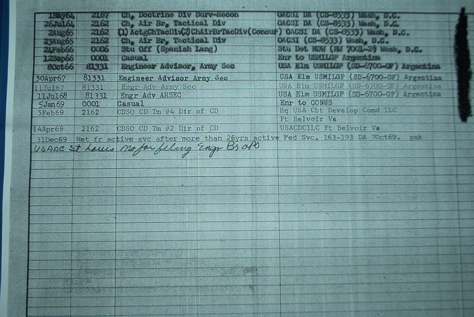 2162 Ch, Doctrine Div Surv-Recon OACSI DA (CS-8533) Wash, D.C.
26Jul64 2162 Ch, Air Br, Tactical Div OACSI DA (CS-8533) Wash, D.C.
2162 OACSI DA (CS-8533) Wash, D.C.
2162 Ch, Air Br, Tactical Div OACSI (CS-8533) Wash, D.C.
21Feb66 0006 Stu Off (Spanish Lang) Stu Det MDW Wash, D.C.
12Sep66 0001 Casual Enr to USMILGP Argentina
8Oct66 81331 Engineer Advisor, Army Sec USA Elm USMILGP (SD-6700-OF) Argentina
30Apr67 81331 Engineer Advisor Army Sec USA Elm USMILGP (SD-6700-OF) Argentina
11Jul67 81331 Engr Adv Army Sec USA Elm USMILGP (SD-6700-OF) Argentina
11Jul68 81331 Engr Adv ARSEC USA Elm USMILGP (SD-6700-OF) Argentina
5Jan69 0001 Casual Enr to CONUS
3Feb69 2162 CDSO CD Tm #4 Dir of CD Hq USA Cbt Develop Comd
Ft Belvoir Va
14Apr69 2162 CDSO CD Tm #2 Dir of CD USACDC Ft Belvoir Va
31Dec69 Ret fr active svc after more than 26yrs active Fed Svc.
St Louis Mo for filing Engr Br